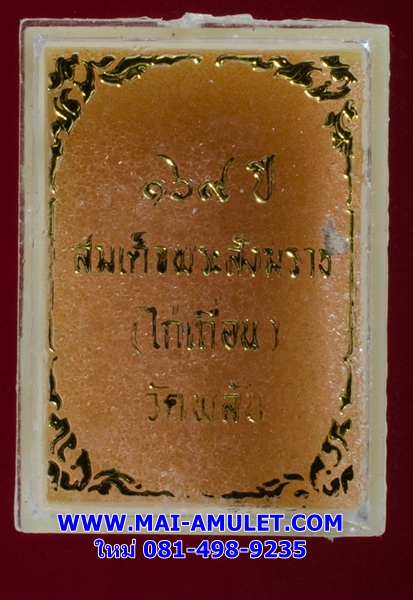 ๑๖๙ ปี
สมเด็จพระสังฆราช
(ไก่เถื่อน)
วัดพลับ
WWW.MAI-AMULET.COM
ใหม่ 081-498-9235